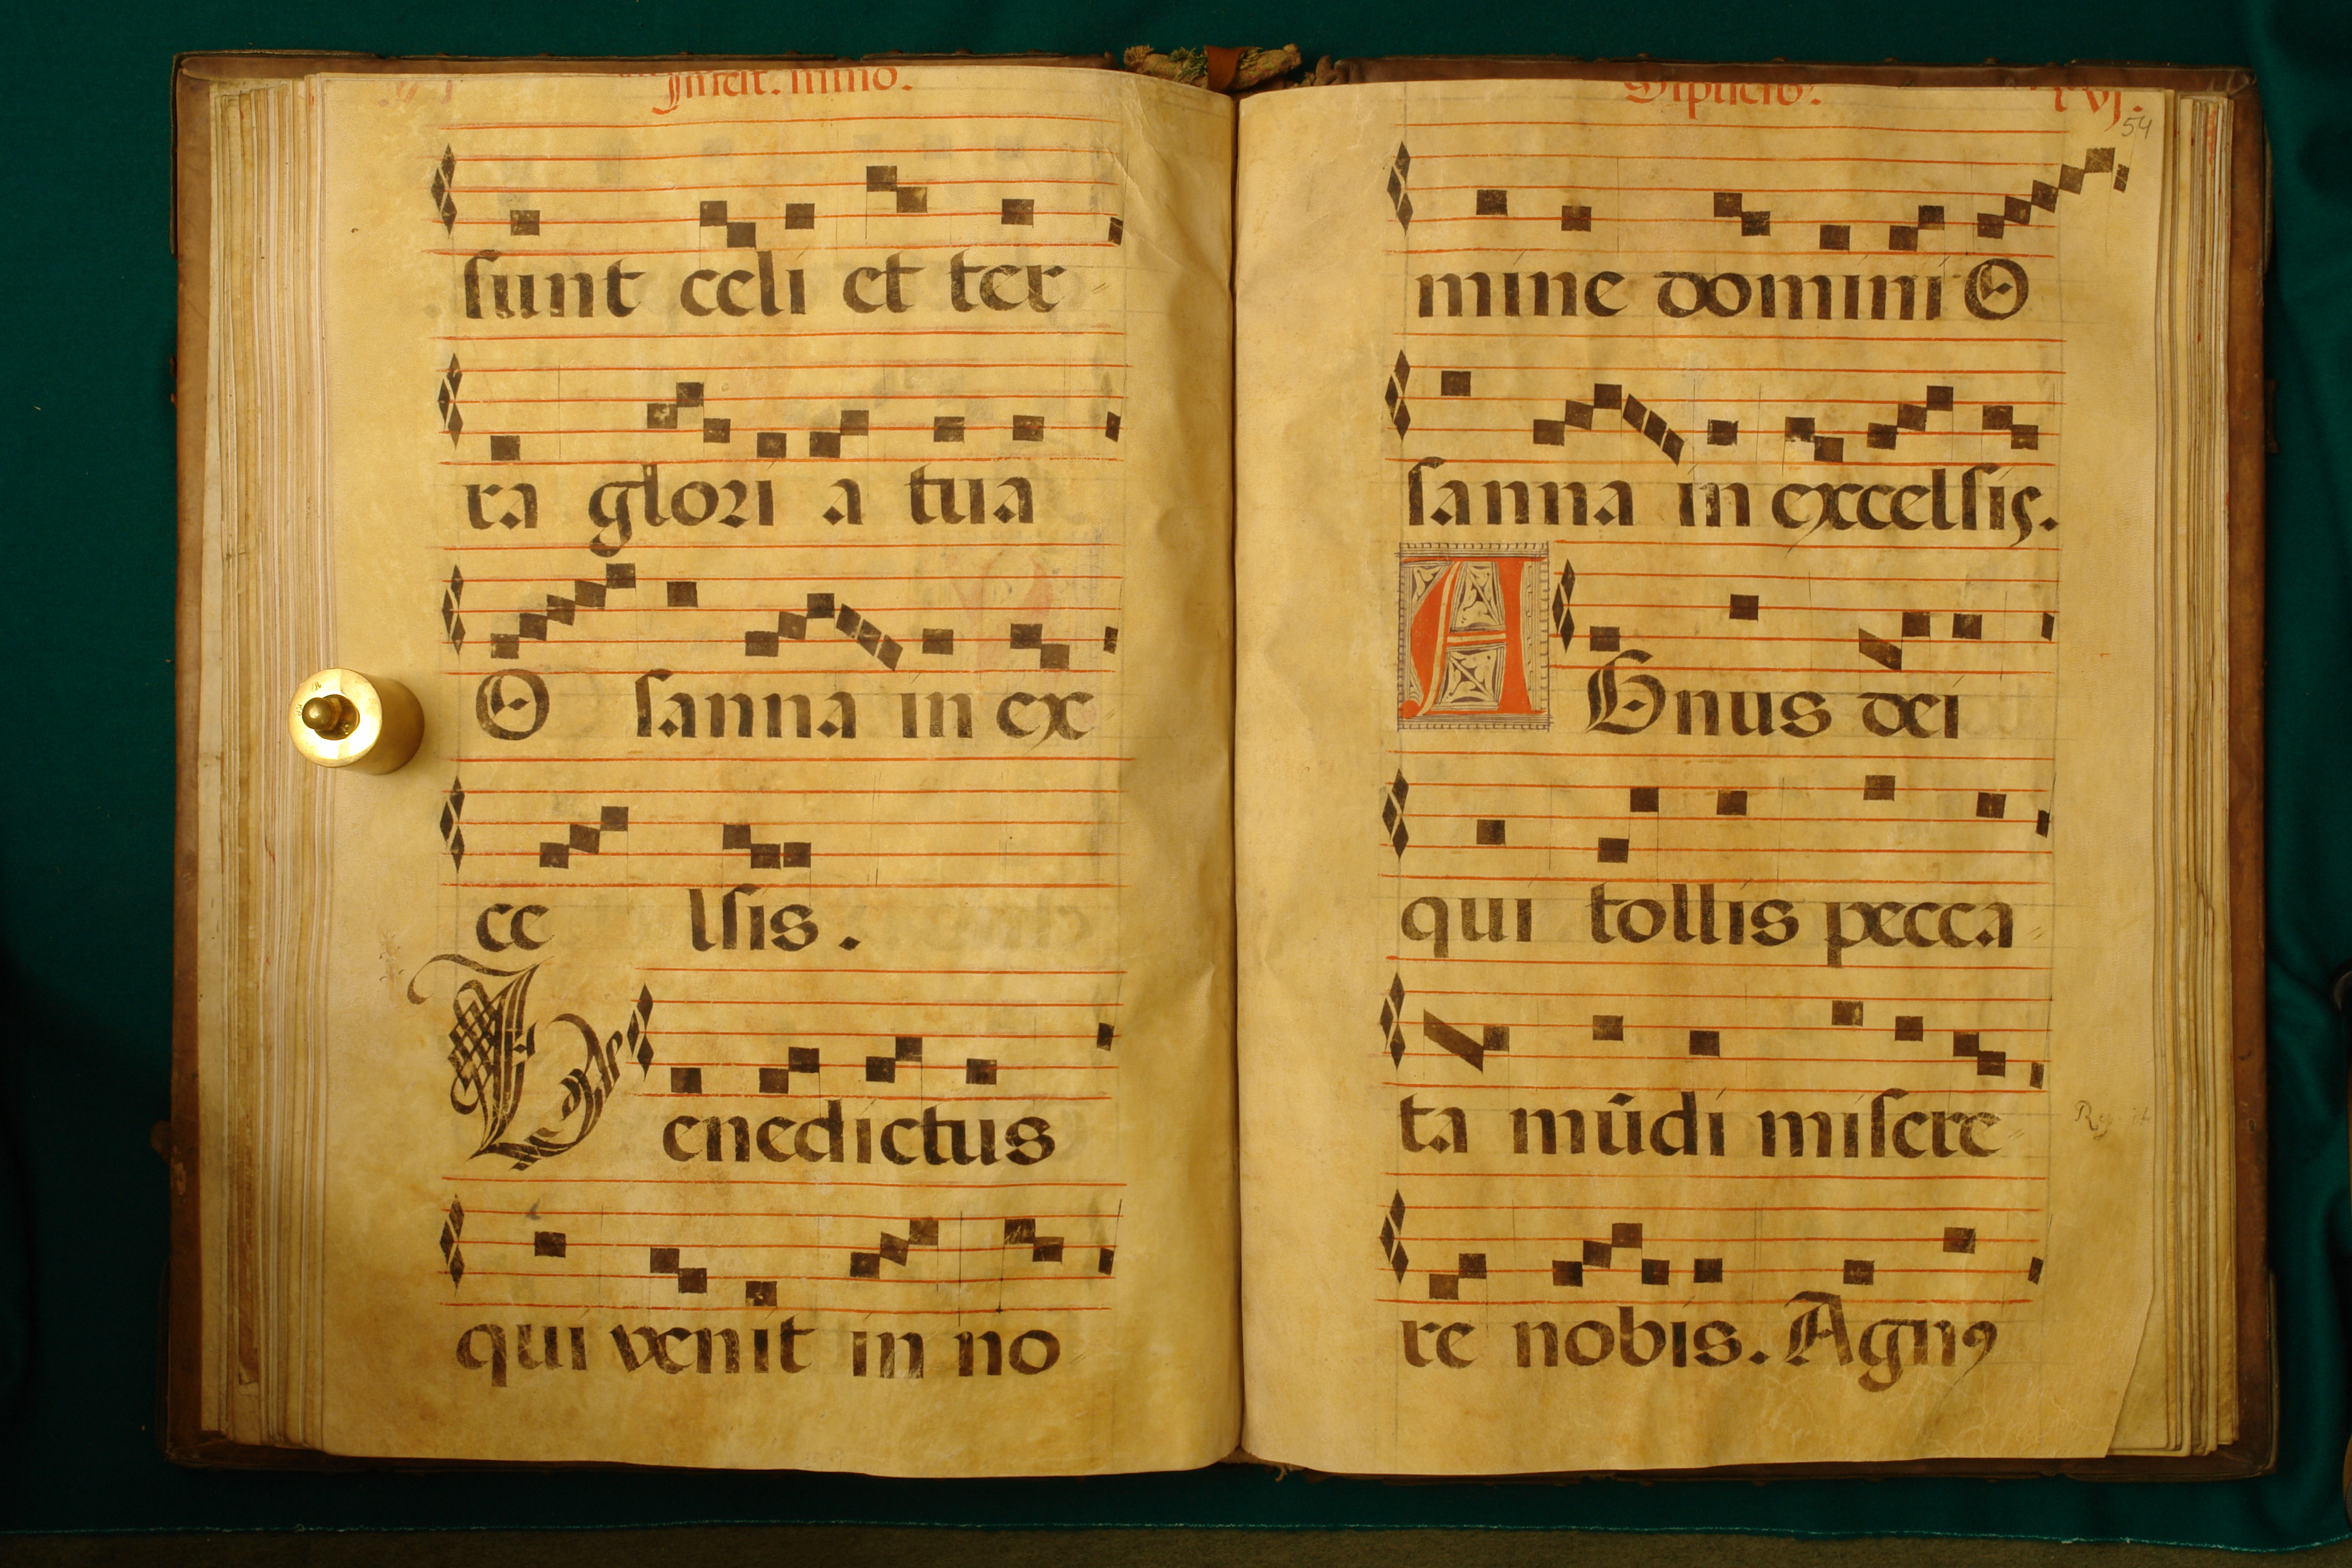 In fest. mino.
sunt celi et ter
ra glori a tua
O sanna in ex
ce lsis.
Benedictus
qui venit in no
Duplicib.
xvj.
54
mine domini O
sanna in excelsis.
AGnus dei
qui tollis pecca
ta mūdi misere
re nobis. Agnꝰ